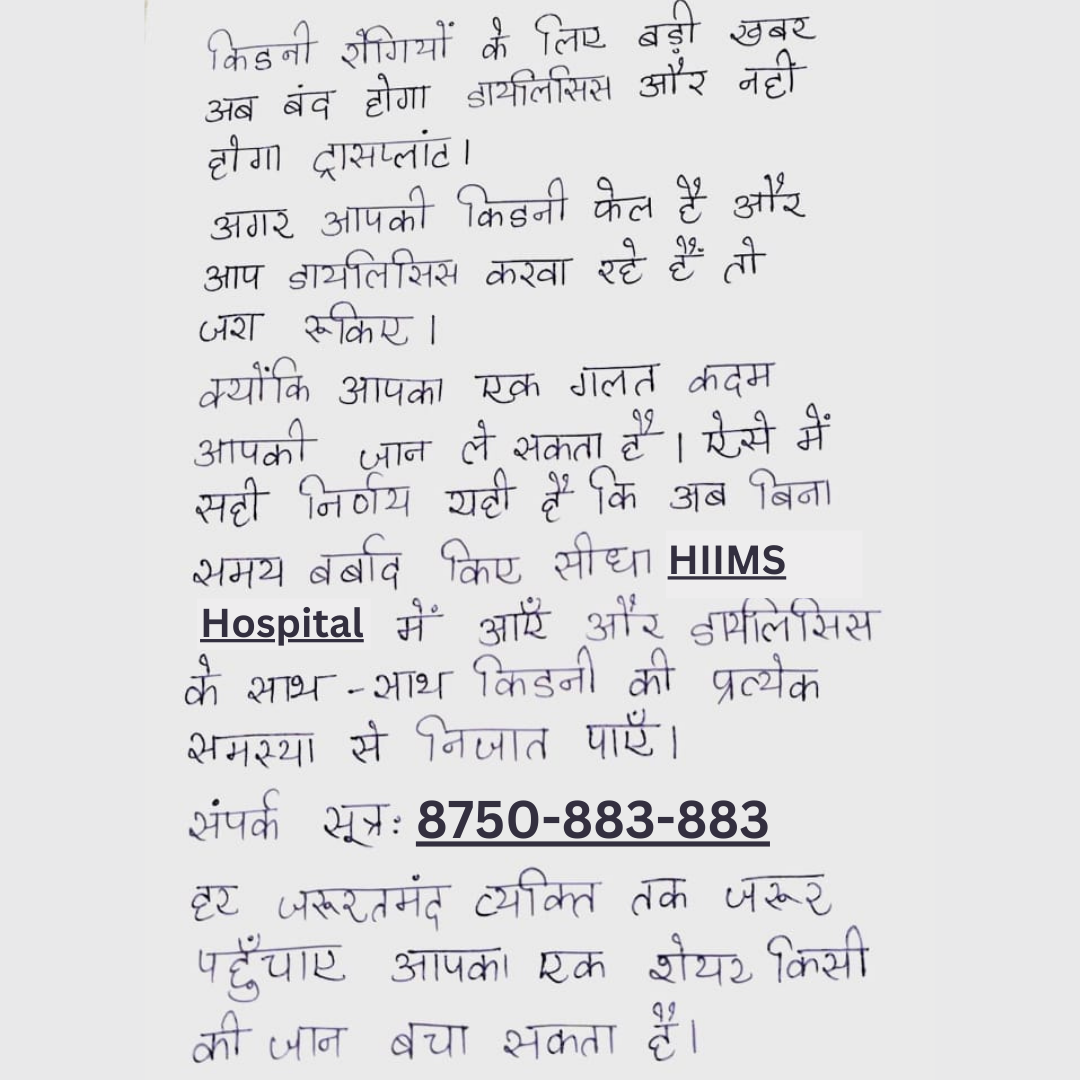 किडनी रोगियों के लिए बड़ी खबर
अब बंद होगा डायलिसिस और नहीं
होगा ट्रासप्लांट।
अगर आपकी किडनी फेल है और
आप डायलिसिस करवा रहे हैं तो
जरा रूकिए।
क्योंकि आपका एक गलत कदम
आपकी जान ले सकता है। ऐसे में
सही निर्णय यही है कि अब बिना
समय बर्बाद किए सीधा HIIMS
Hospital में आएँ और डायलिसिस
के साथ-साथ किडनी की प्रत्येक
समस्या से निजात पाएँ।
संपर्क सूत्र: 8750-883-883
हर जरूरतमंद व्यक्ति तक जरूर
पहुँचाए आपका एक शेयर किसी
की जान बचा सकता है।